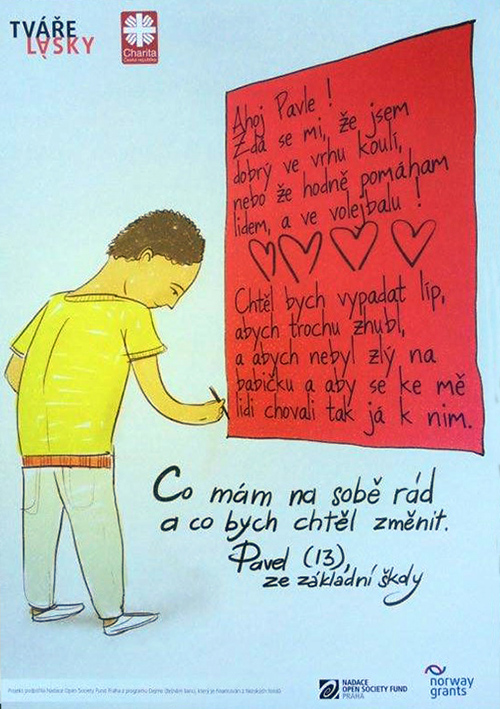 TVÁŘE
LÁSKY
Charita
Česká republika
Ahoj Pavle !
Zdá se mi, že jsem
dobrý ve vrhu koulí,
nebo že hodně pomáham
lidem, a ve volejbalu !
Chtěl bych vypadat líp,
abych trochu zhubl,
a abych nebyl zlý na
babičku a aby se ke mě
lidi chovali tak já k nim.
Co mám na sobě rád
a co bych chtěl změnit.
Pavel (13),
ze základní školy
Projekt podpořila Nadace Open Society Fund Praha z programu Dejme šanci, který je financován z Norských fondů
NADACE
OPEN SOCIETY FUND
PRAHA
norway
grants